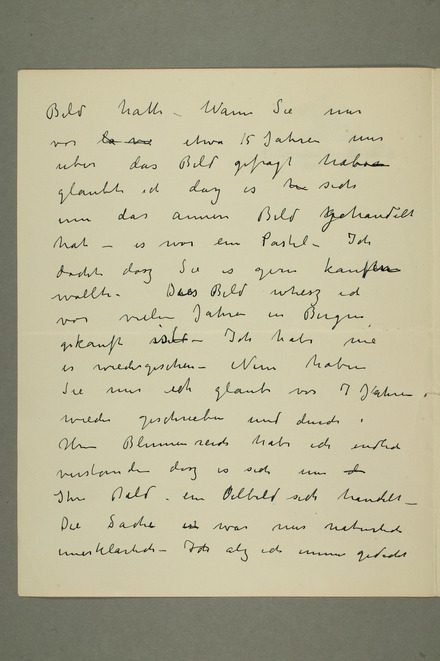 Bild hatte – Wann Sie mir
vor etwa 15 Jahren mir
über das Bild gefragt haben
glaubte ich dasz es sich
um das annere Bild gehandelt
hat – es war ein Pastel – Ich
dachte dasz Sie es gern kaufen
wollte – Dies Bild ich
vor vielen Jahren in Bergen
gekauft – Ich habe nie
es wiedergesehen – Nun haben
Sie mir ich glaube vor 7 Jahren
wieder geschrieben und durch
Ihre habe ich endlich
verstanden dasz es sich um
Ihr Bild – ein Oelbild sich handelt –
Die Sache war mir naturlich
unerklärlich – Ich immer gedacht